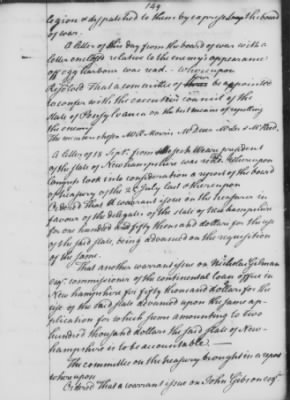 149
legion & dispatched to them by express by the board
of war.
A letter of this day from the board of war with a
letter enclosed relative to the enemy's appearance
off egg harbour was read. Whereupon
Resolved That a committee of four be appointed
to confer with the executive council of the
State of Pensylvania on the best means of repelling
the enemy
The members chosen Mr R Morris, Mr Duer Mr & Mr Read.
A letter of 18 Septr. from Meshech Weare president
of the state of New hampshire was read: Whereupon
Congress took into consideration a report of the board
of treasury of the 25 July last & thereupon
Ordered That a warrant issue on the treasurer in
favour of the delegates of the state of New hampshire
for one hundred and fifty thousand dollars for the use
of the said state, being advanced on the requisition
of the same.
That another warrant issue on Nicholas Gilman
esqr. commissioner of the continental loan office in
New hampshire for fifty thousand dollars for the
use of the said state advanced upon the same ap-
plication for which sums amounting to two
hundred thousand dollars the said state of New-
hampshire is to be accountable.
The committee on the treasury brought in a report
whereupon
Ordered That a warrant issue on John Gibson esqr